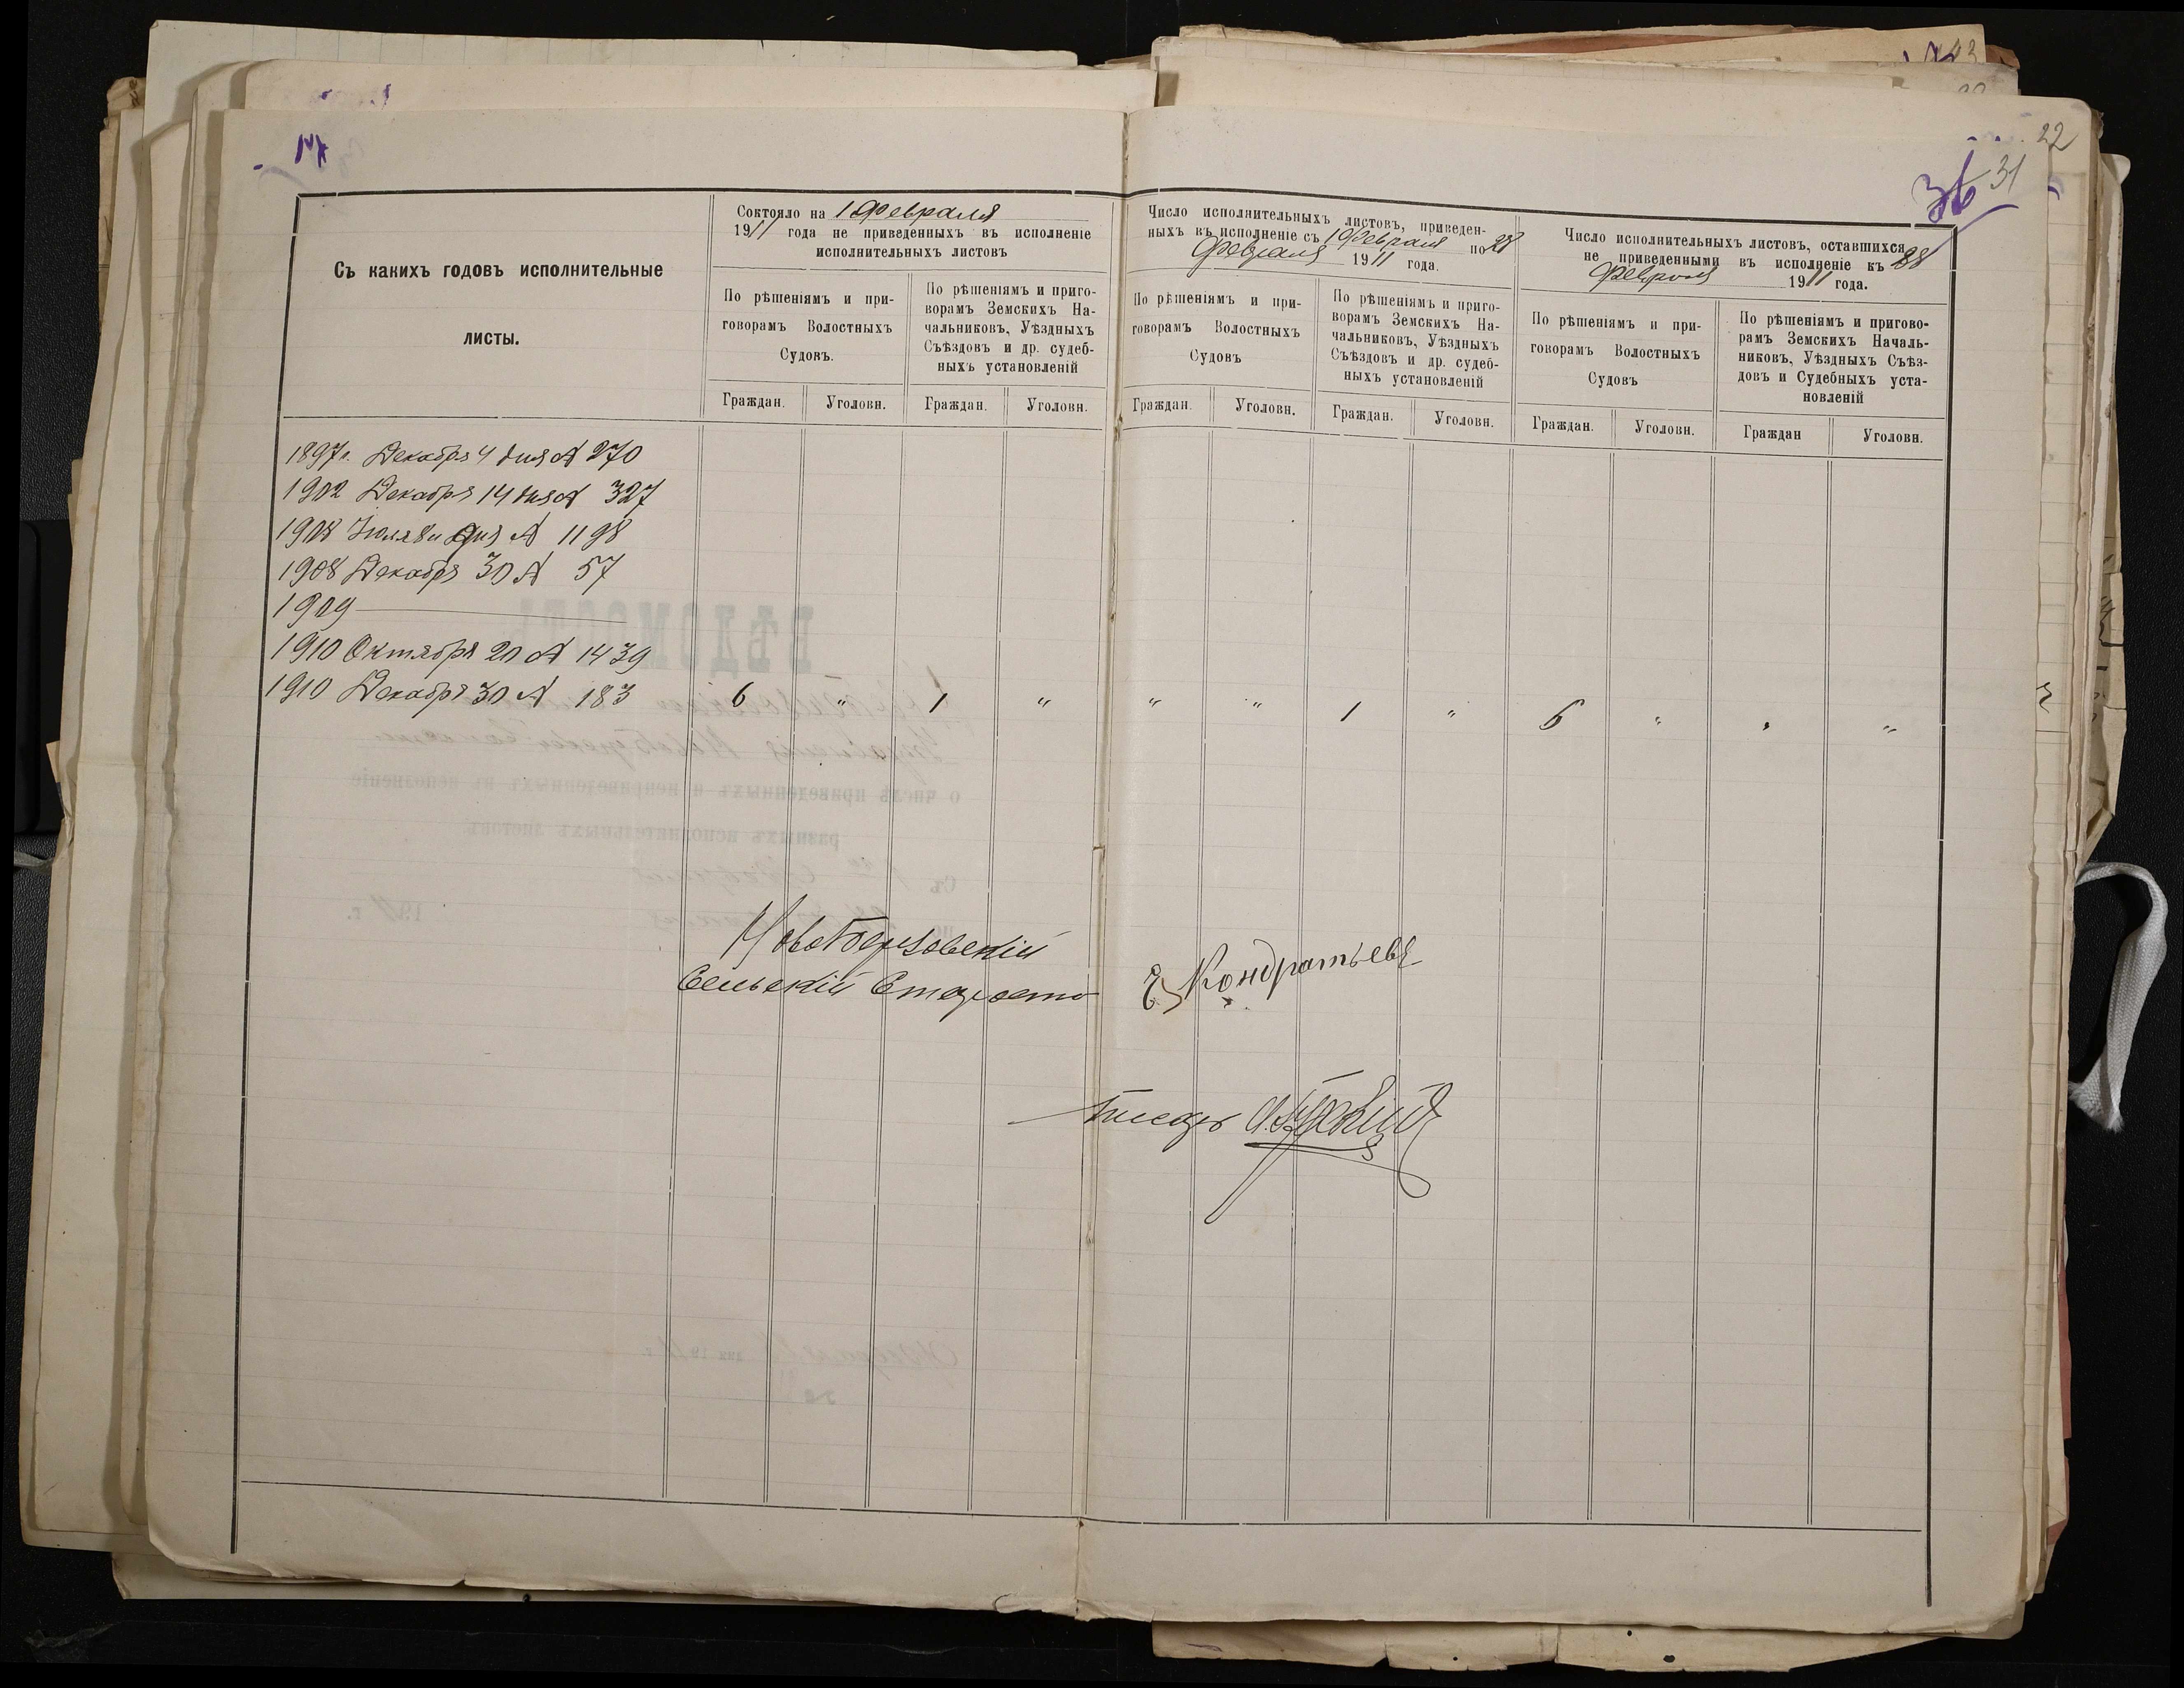 22
31
36
Съ какихъ годовъ исполнительные
листы.
Состояло на 1 Февраля
1911 года не приведенныхъ въ исполненіе
исполнительныхъ листовъ
По рѣшеніямъ и при-
говорамъ Волостныхъ
Судовъ.
По рѣшеніямъ и приго-
ворамъ Земскихъ На-
чальниковъ, Уѣздныхъ
Съѣздовъ и др. судеб-
ныхъ установленій
Граждан. Уголовн. Граждан. Уголовн.
Число исполнительныхъ листовъ, приведен-
ныхъ къ исполненіе съ 1 Февраля по 28
Февраля 1911 года.
По рѣшеніямъ и при-
говорамъ Волостныхъ
Судовъ
По рѣшеніямъ и приго-
ворамъ Земскихъ На-
чальниковъ, Уѣздныхъ
Съѣздовъ и др. судеб-
ныхъ установленій
Граждан. Уголовн. Граждан. Уголовн.
Число исполнительныхъ листовъ, оставшихся
не приведенными въ исполненіе къ 28
Февраля 1911 года.
По рѣшеніямъ и при-
говорамъ Волостныхъ
Судовъ
По рѣшеніямъ и пригово-
рамъ Земскихъ Началь-
никовъ, Уѣздныхъ Съѣз-
довъ и Судебныхъ уста-
новленій
Граждан. Уголовн. Граждан Уголовн.
1897 г. Декабря 4 дня № 270
1902 Декабря 14 дня № 327
1908 Іюля 8 дня № 1198
1908 Декабря 30 № 57
1909
1910 Октября 20 № 1439
1910 Декабря 30 № 183 6 " 1 " " " 1 " 6 " " "
Сельскій Староста Е Кондратьевъ
Писарь